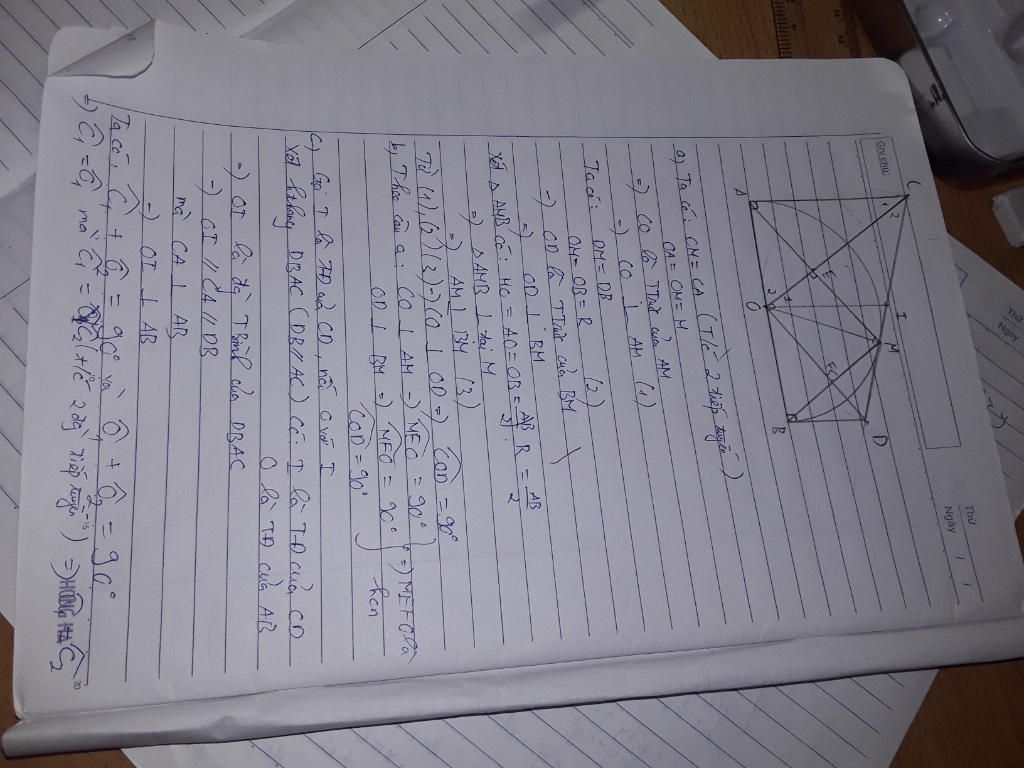 Ghi chú:
Thứ
Ngày
C
1
2
I
M
D
E
F
A
O
2
1
B
a, Ta có: CM = CA (T/c 2 tiếp tuyến)
OA = OM = R
=) CO là TTrực của AM
=) CO ⊥ AM (1)
Ta có: DM = DB
OM = OB = R (2)
=) OD là TTrực của BM
=) OD ⊥ BM
Xét △ AMB có: MO = AO = OB = AB/2 . R = AB/2
=) △ AMB ⊥ tại M
=) AM ⊥ BM (3)
Từ (1), (2) (3) =) CO ⊥ OD =) COD = 90°
b, Theo câu a: CO ⊥ AM =) MEO = 90°
OD ⊥ BM =) MFO = 90° =) MEFO là
COD = 90° hcn
c, Gọi I là TĐ của CD, nối O với I
Xét hthang DBAC (DB // AC) có I là TĐ của CD
O là TĐ của AB
=) OI là đg TBình của DBAC
=) OI // CA // DB
mà CA ⊥ AB
=) OI ⊥ AB
Ta có: C₁ + O₂ = 90° và O₁ + O₂ = 90°
=) C₁ = O₁ mà C₁ = C₂ (t/c 2 đg tiếp tuyến) =)